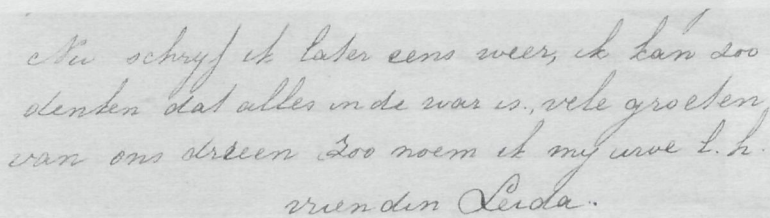 Nu schryf ik later eens weer, ik kan zoo
denken dat alles in de war is., vele groeten
van ons drieen Zoo noem ik my urve l. h.
vriendin Leida.